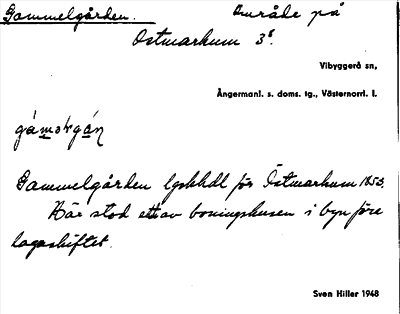 Gammelgården. Område på
Östmarkum 3⁶.
Vibyggerå sn,
Ångermanl. s. doms. tg., Västernorrl. l.
Gammelgården lgskhdl för Östmarkum 1853.
Här stod ett av boningshusen i byn före
lagaskiftet.
Sven Hiller 1948